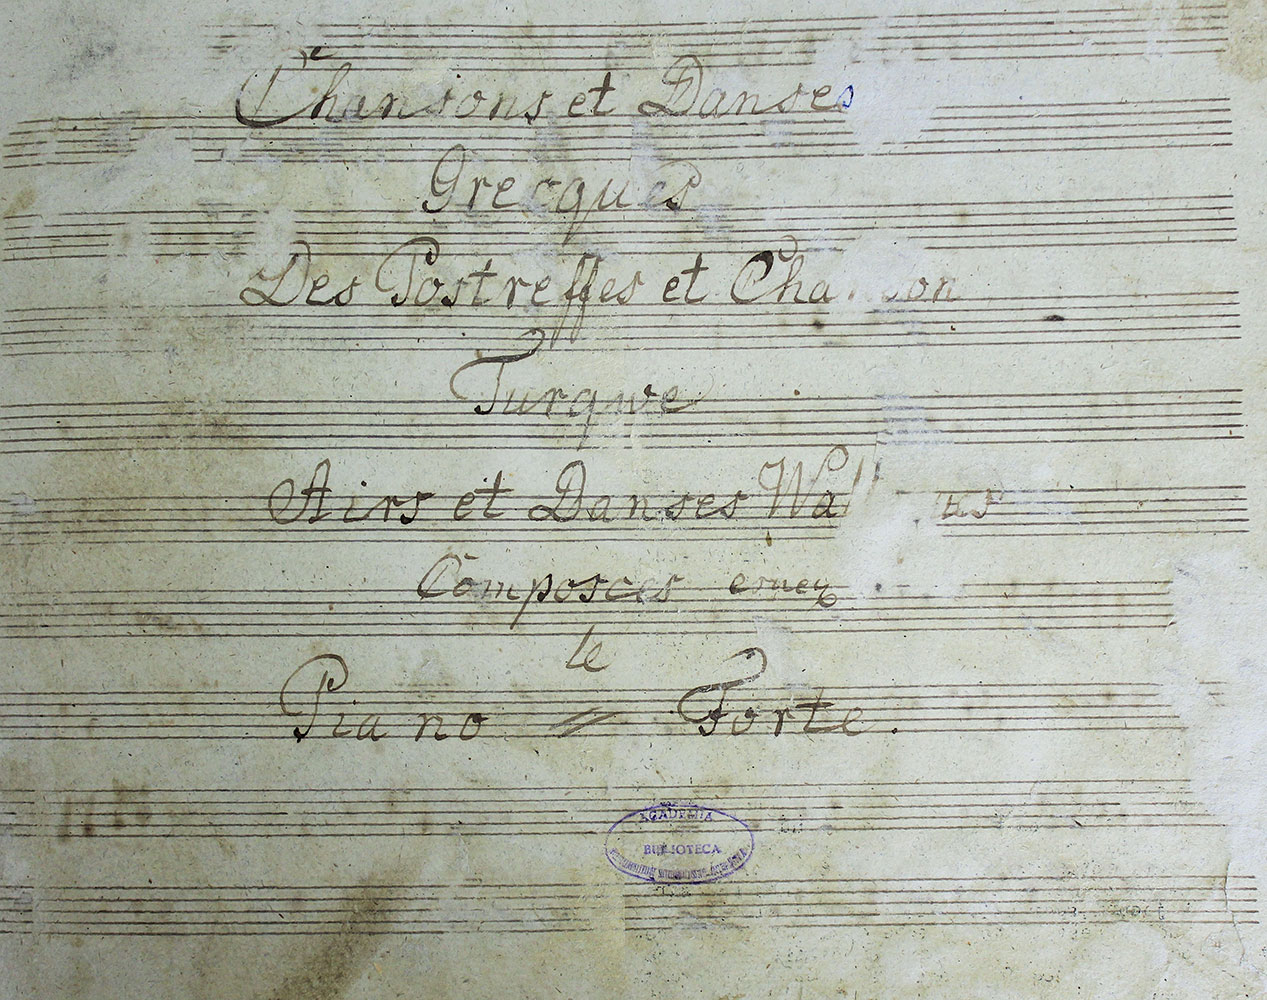 Chansons et Danses
Grecques
Des Postreffes et
Turque
Airs et Danses
Composces
le
Piano = Forte.
ACADEMIA
BIBLIOTECA